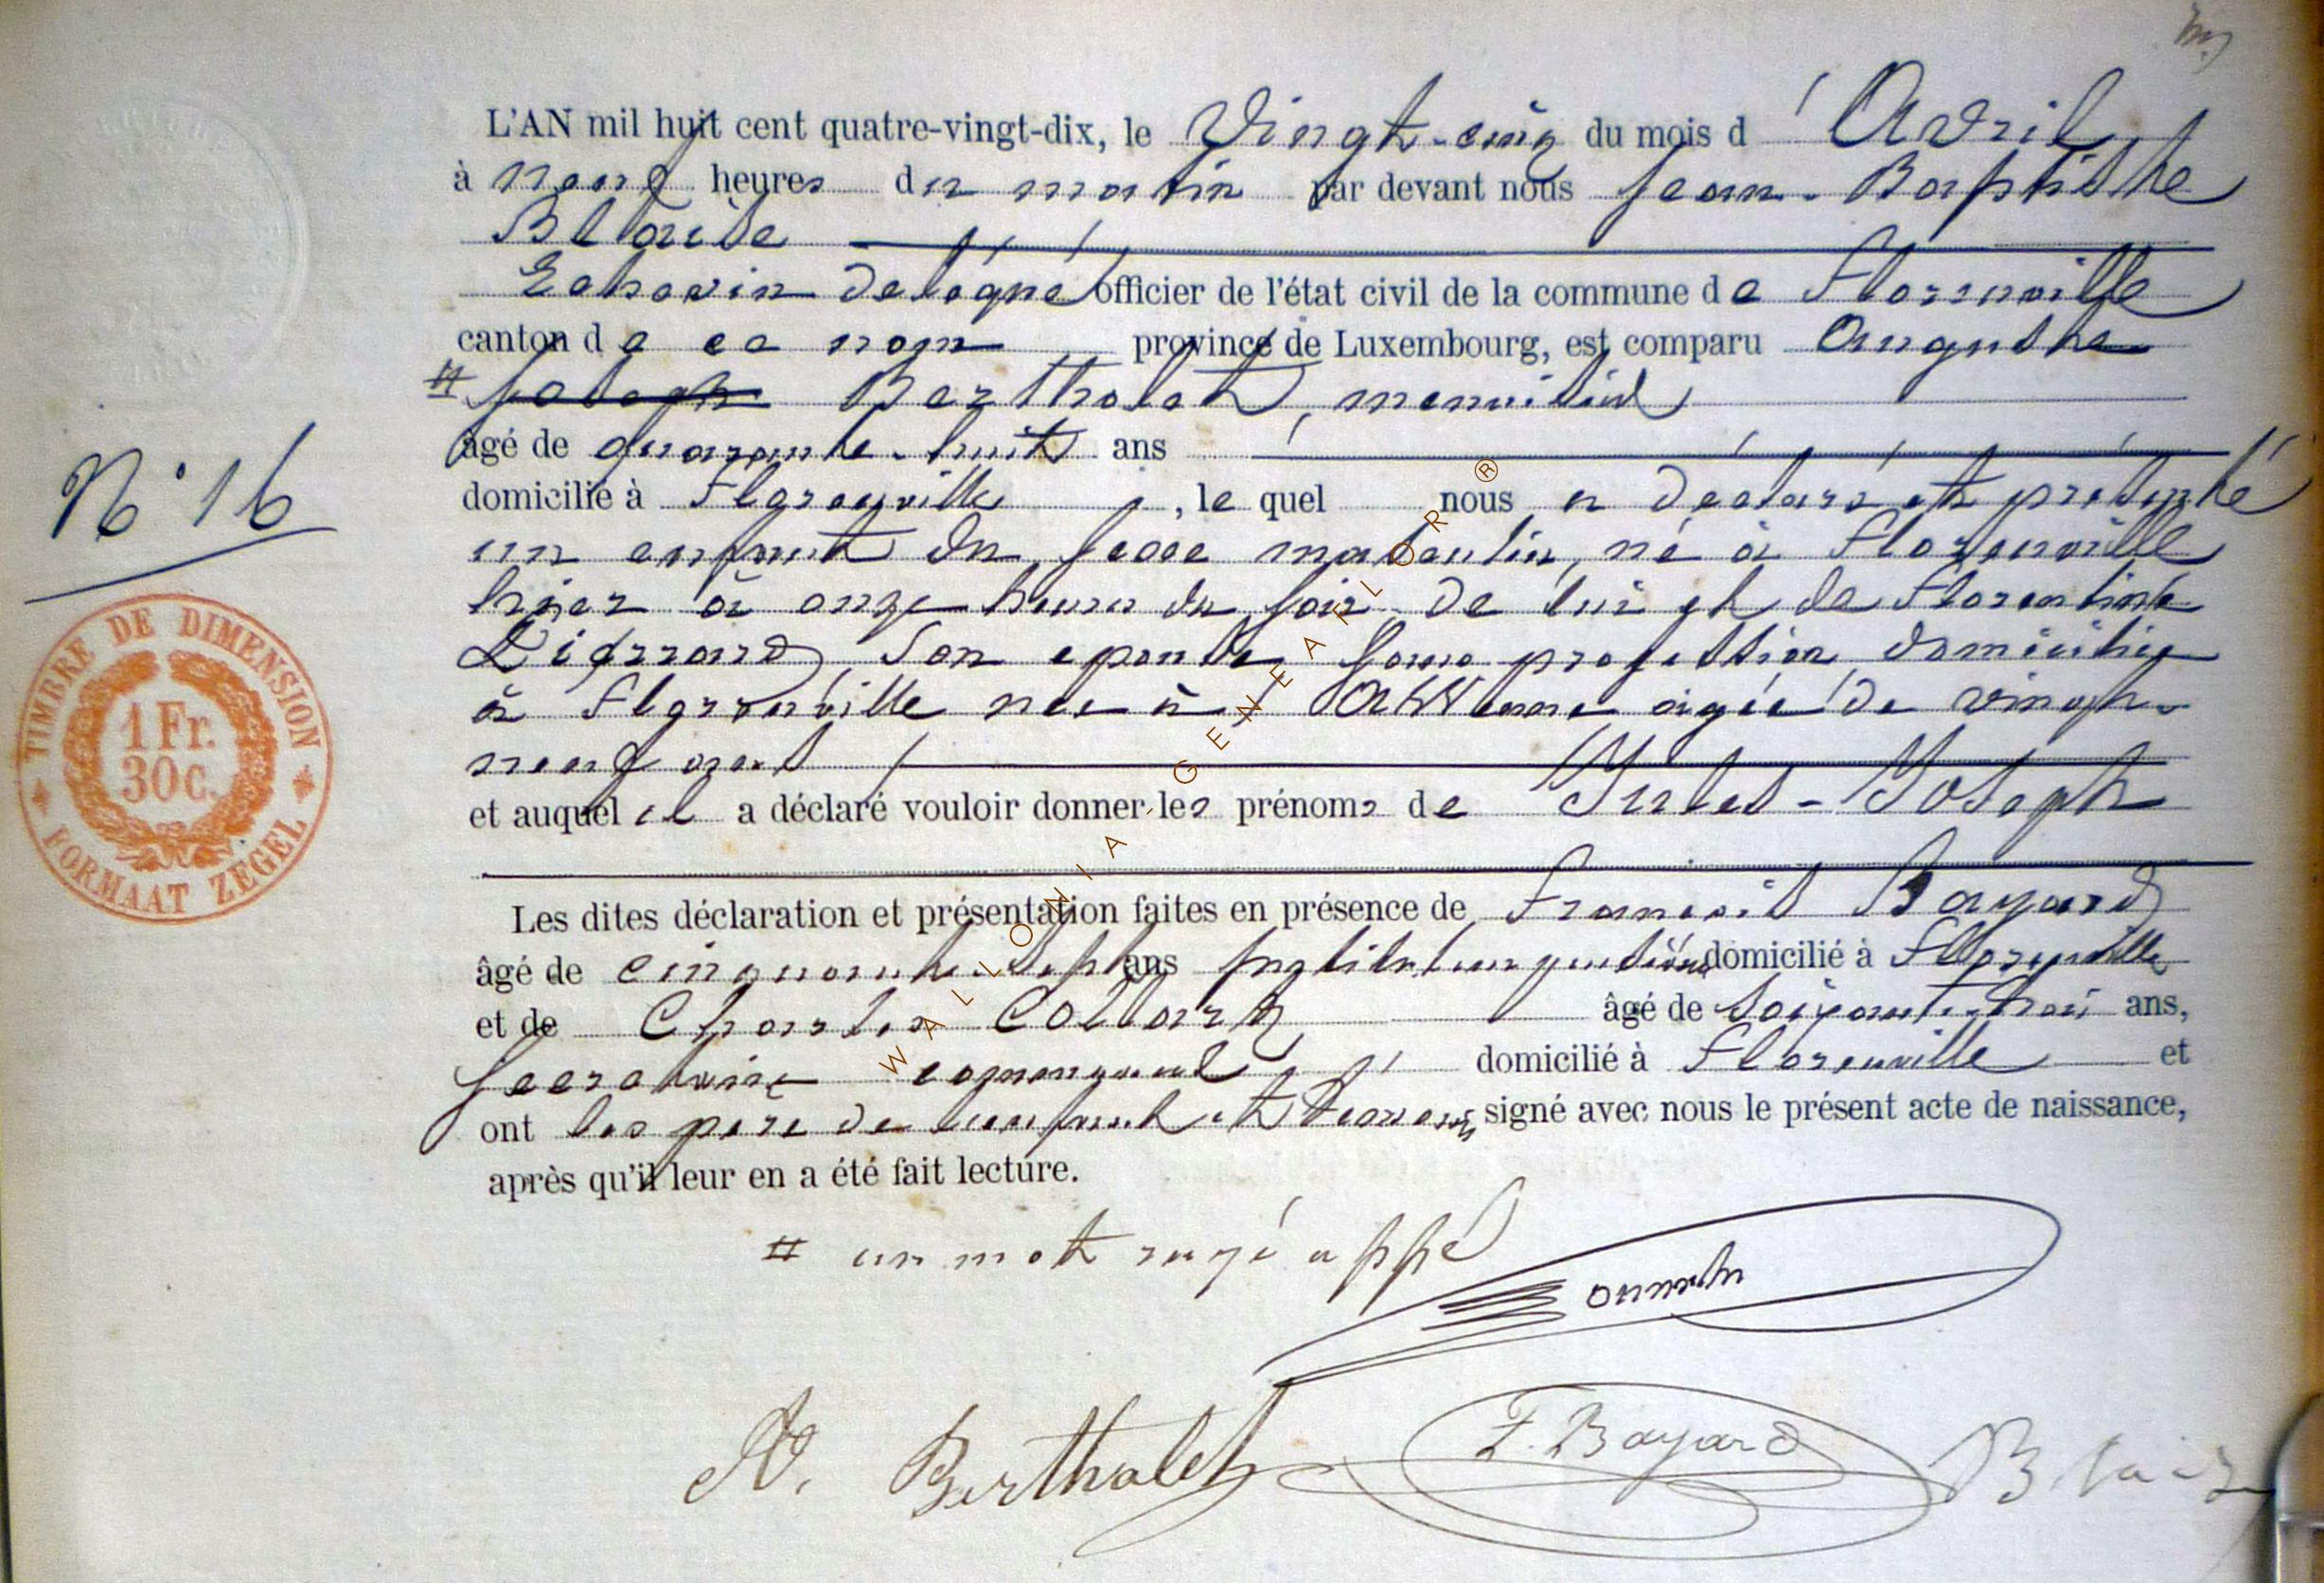 L'AN mil huit cent quatre-vingt-dix, le Vingt-cinq du mois d'Avril
à neuf heures du matin par devant nous Jean-Baptiste
Blaise
Echevin délégué officier de l'état civil de la commune de Florenville
canton de ce nom province de Luxembourg, est comparu Auguste
# Joseph Bertholet, menuisier
âgé de quarante-huit ans
domicilié à Florenville, le quel nous a déclaré et présenté
un enfant du sexe masculin, né à Florenville
hier à onze heures du soir de lui et de Florentine
son epouse sans profession domiciliée
à Florenville née à agée de vingt-
neuf ans
et auquel il a déclaré vouloir donner les prénoms de Jules-Joseph
Les dites déclaration et présentation faites en présence de François Bayard
âgé de cinquante-sept ans Instituteur domicilié à Florenville
et de Charles Collart âgé de soixante-trois ans,
secretaire communal domicilié à Florenville et
ont les père de l'enfant et temoins signé avec nous le présent acte de naissance,
après qu'il leur en a été fait lecture.
# un mot rayé appé
A. Bertholet F. Bayard Blaise
N° 16
TIMBRE DE DIMENSION
1 Fr.
30 c.
FORMAAT ZEGEL
WALLONIA - GENEAKLOR ®